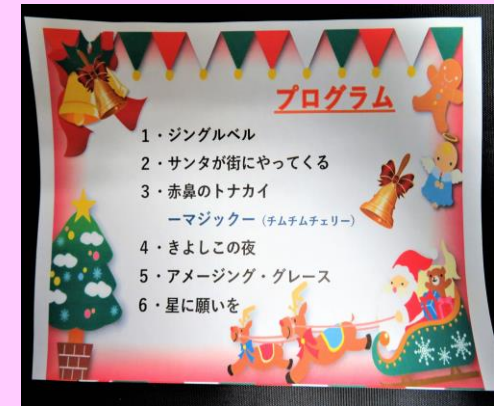 プログラム
1・ジングルベル
2・サンタが街にやってくる
3・赤鼻のトナカイ
ーマジックー（チムチムチェリー）
4・きよしこの夜
5・アメージング・グレース
6・星に願いを